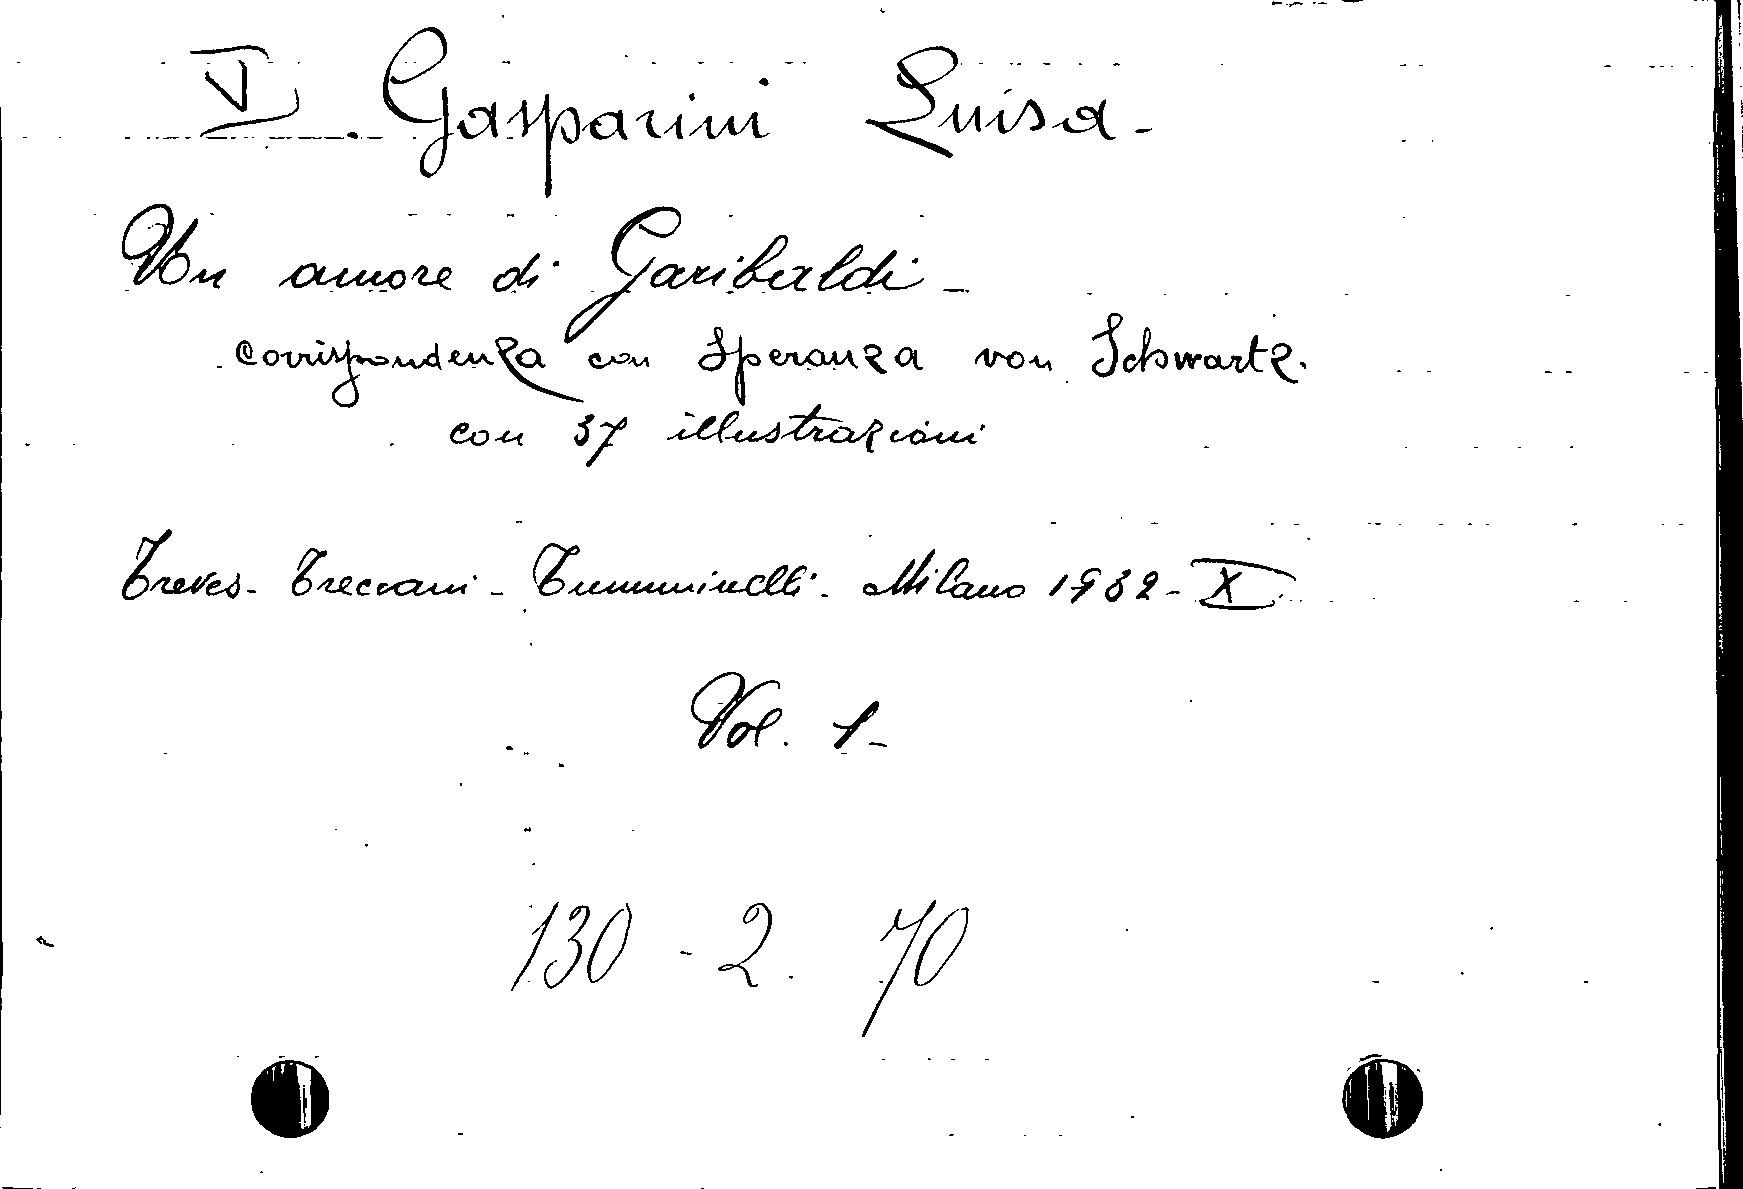 V. Gasparini Luisa -
Un amore di Garibaldi -
corrispondenza con Speranza von Schwartz.
con 37 illustrazioni
Treves - Treccani - Tumminelli - Milano 1932 - X
Vol. 1 -
130 - 2. 70